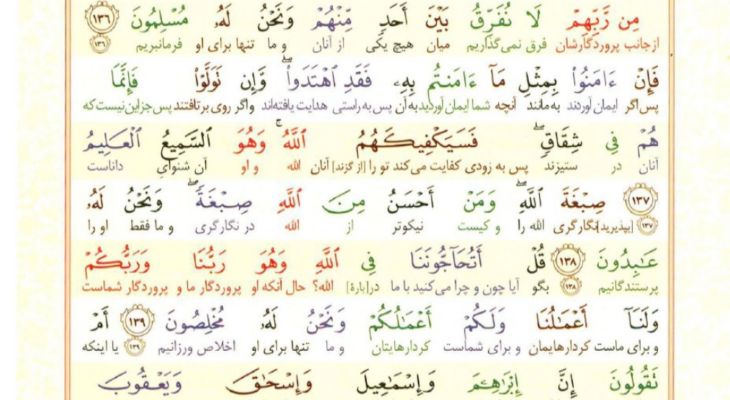 مِن رَّبِّهِمْ لَا نُفَرِّقُ بَيْنَ أَحَدٍ مِّنْهُمْ وَنَحْنُ لَهُۥ مُسْلِمُونَ ١٣٦
از جانب پروردگارشان فرق نمی‌گذاریم میان هیچ یکی از آنان و ما تنها برای او فرمانبریم ۱۳۶
فَإِنْ ءَامَنُوا۟ بِمِثْلِ مَآ ءَامَنتُم بِهِۦ فَقَدِ ٱهْتَدَوا۟ ۖ وَّإِن تَوَلَّوْا۟ فَإِنَّمَا
پس اگر ایمان آوردند به مانند آنچه شما ایمان آوردید به آن پس به راستی هدایت یافته‌اند و اگر روی برتافتند پس جز این نیست که
هُمْ فِى شِقَاقٍ ۖ فَسَيَكْفِيكَهُمُ ٱللَّهُ ۚ وَهُوَ ٱلسَّمِيعُ ٱلْعَلِيمُ
آنان در ستیزند پس به زودی کفایت می‌کند تو را [از گزند] آنان الله و او آن شنوای داناست
١٣٧ صِبْغَةَ ٱللَّهِ ۖ وَمَنْ أَحْسَنُ مِنَ ٱللَّهِ صِبْغَةً ۖ وَنَحْنُ لَهُۥ
۱۳۷ [بپذیرید] نگارگری الله را و کیست نیکوتر از الله در نگارگری و ما فقط او را
عَـٰبِدُونَ ١٣٨ قُلْ أَتُحَآجُّونَنَا فِى ٱللَّهِ وَهُوَ رَبُّنَا وَرَبُّكُمْ
پرستندگانیم ۱۳۸ بگو آیا چون و چرا می‌کنید با ما در [بارهٔ] الله؟ حال آنکه او پروردگار ما و پروردگار شماست
وَلَنَآ أَعْمَـٰلُنَا وَلَكُمْ أَعْمَـٰلُكُمْ وَنَحْنُ لَهُۥ مُخْلِصُونَ ١٣٩ أَمْ
و برای ماست کردارهایمان و برای شماست کردارهایتان و ما تنها برای او اخلاص ورزانیم ۱۳۹ یا اینکه
تَقُولُونَ إِنَّ إِبْرَٰهِـۧمَ وَإِسْمَـٰعِيلَ وَإِسْحَـٰقَ وَيَعْقُوبَ